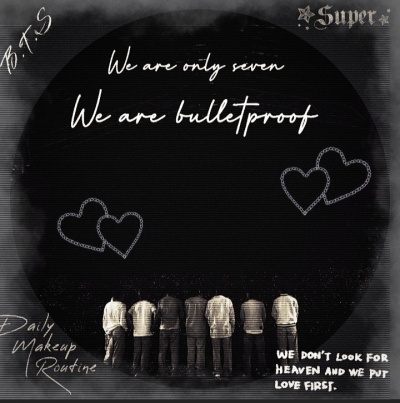 B.T.S
Super
We are only seven
We are bulletproof
Daily
Makeup
Routine
WE DON'T LOOK FOR
HEAVEN AND WE PUT
LOVE FIRST.